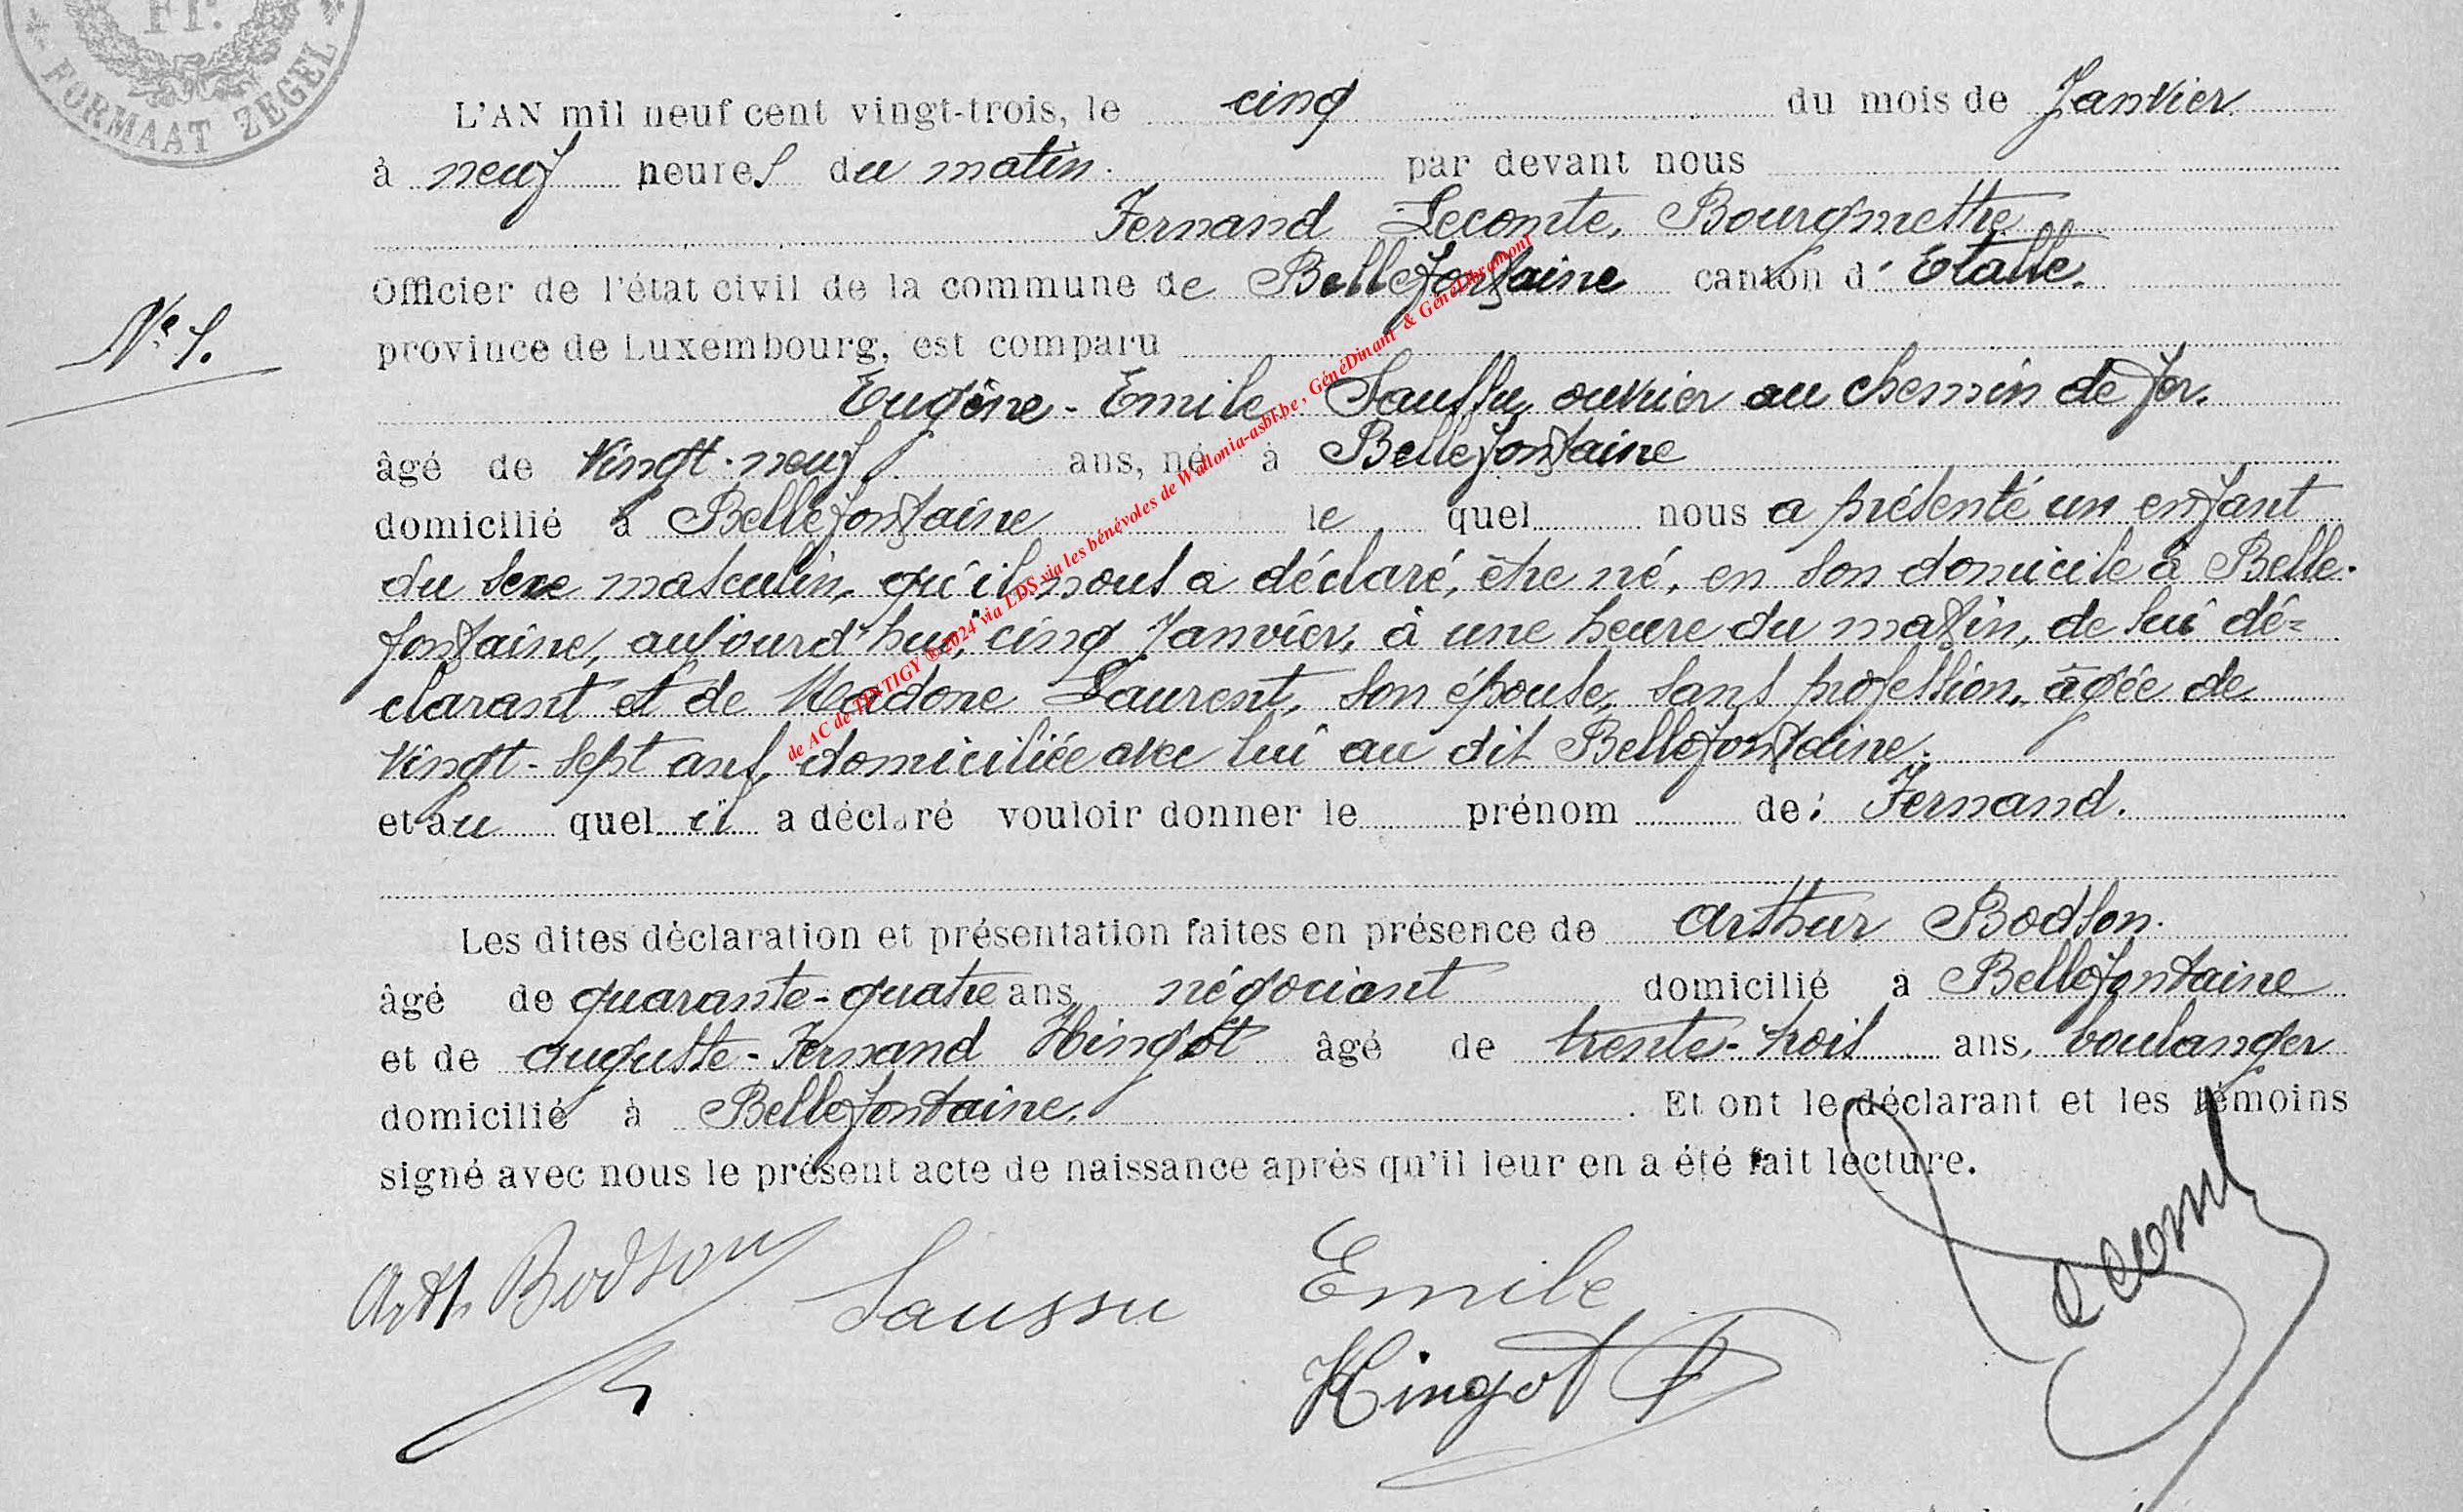 Fr.
* FORMAAT ZEGEL *
L'AN mil neuf cent vingt-trois, le cinq du mois de Janvier
à neuf heures du matin. par devant nous
Fernand Lecomte, Bourgmestre
Officier de l'état civil de la commune de Bellefontaine canton d'Etalle.
N° 1.
province de Luxembourg, est comparu
Eugène-Emile Saussu, ouvrier au chemin de fer.
âgé de vingt-neuf ans, né à Bellefontaine
domicilié à Bellefontaine le quel nous a présenté un enfant
du sexe masculin, qu'il nous a déclaré, être né, en son domicile à Belle-
fontaine, aujourd'hui, cinq Janvier, à une heure du matin, de lui dé=
clarant et de Madone Laurent, son épouse, sans profession, âgée de
vingt-sept ans, domiciliée avec lui au dit Bellefontaine.
et au quel il a déclaré vouloir donner le prénom de: Fernand.
Les dites déclaration et présentation faites en présence de Arthur Bodson.
âgé de quarante-quatre ans négociant domicilié à Bellefontaine
et de Auguste-Fernand Hingot âgé de trente-trois ans, boulanger
domicilié à Bellefontaine. . Et ont le déclarant et les témoins
signé avec nous le présent acte de naissance après qu'il leur en a été fait lecture.
Arth. Bodson Saussu Emile Lecomte
Hingot
de AC de TINTIGY ® 2024 via LDS via les bénévoles de Wallonia-asbl.be , GénéDinant & GénéLibramont